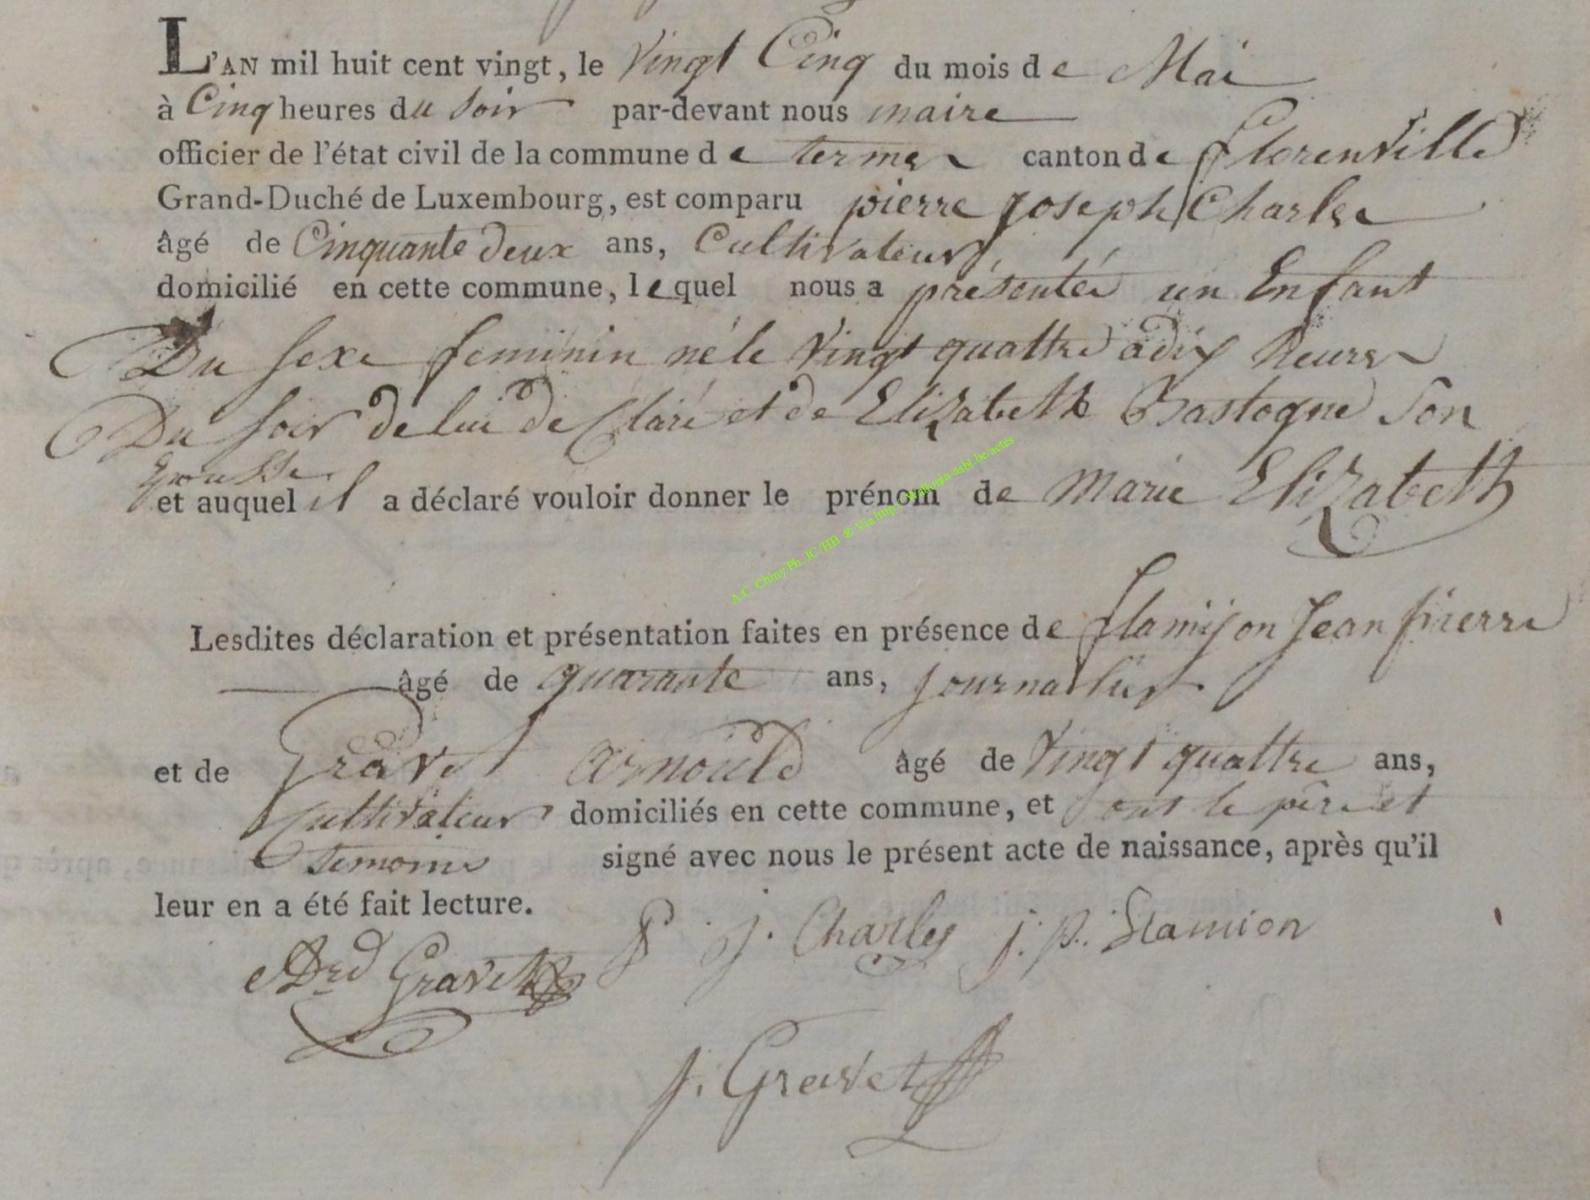 L'AN mil huit cent vingt, le Vingt Cinq du mois de Mai
à Cinq heures du soir par-devant nous maire
officier de l'état civil de la commune de termes canton de florenville
Grand-Duché de Luxembourg, est comparu pierre Joseph Charles
âgé de Cinquante deux ans, Cultivateur,
domicilié en cette commune, lequel nous a présentée un Enfant
Du sexe feminin né le Vingt quattre a dix heures
Du soir de lui de Claré et de Elizabeth Bastogne Son
Epousse
et auquel il a déclaré vouloir donner le prénom de Marie Elizabeth
Lesdites déclaration et présentation faites en présence de flamijon Jean pierre
âgé de quarante ans, journallier
et de Gravet arnould âgé de Vingt quattre ans,
Cultivateur domiciliés en cette commune, et ont le père et
temoins signé avec nous le présent acte de naissance, après qu'il
leur en a été fait lecture.
Ard Gravet P. j. Charles j. p. Slamion
j. Gravet